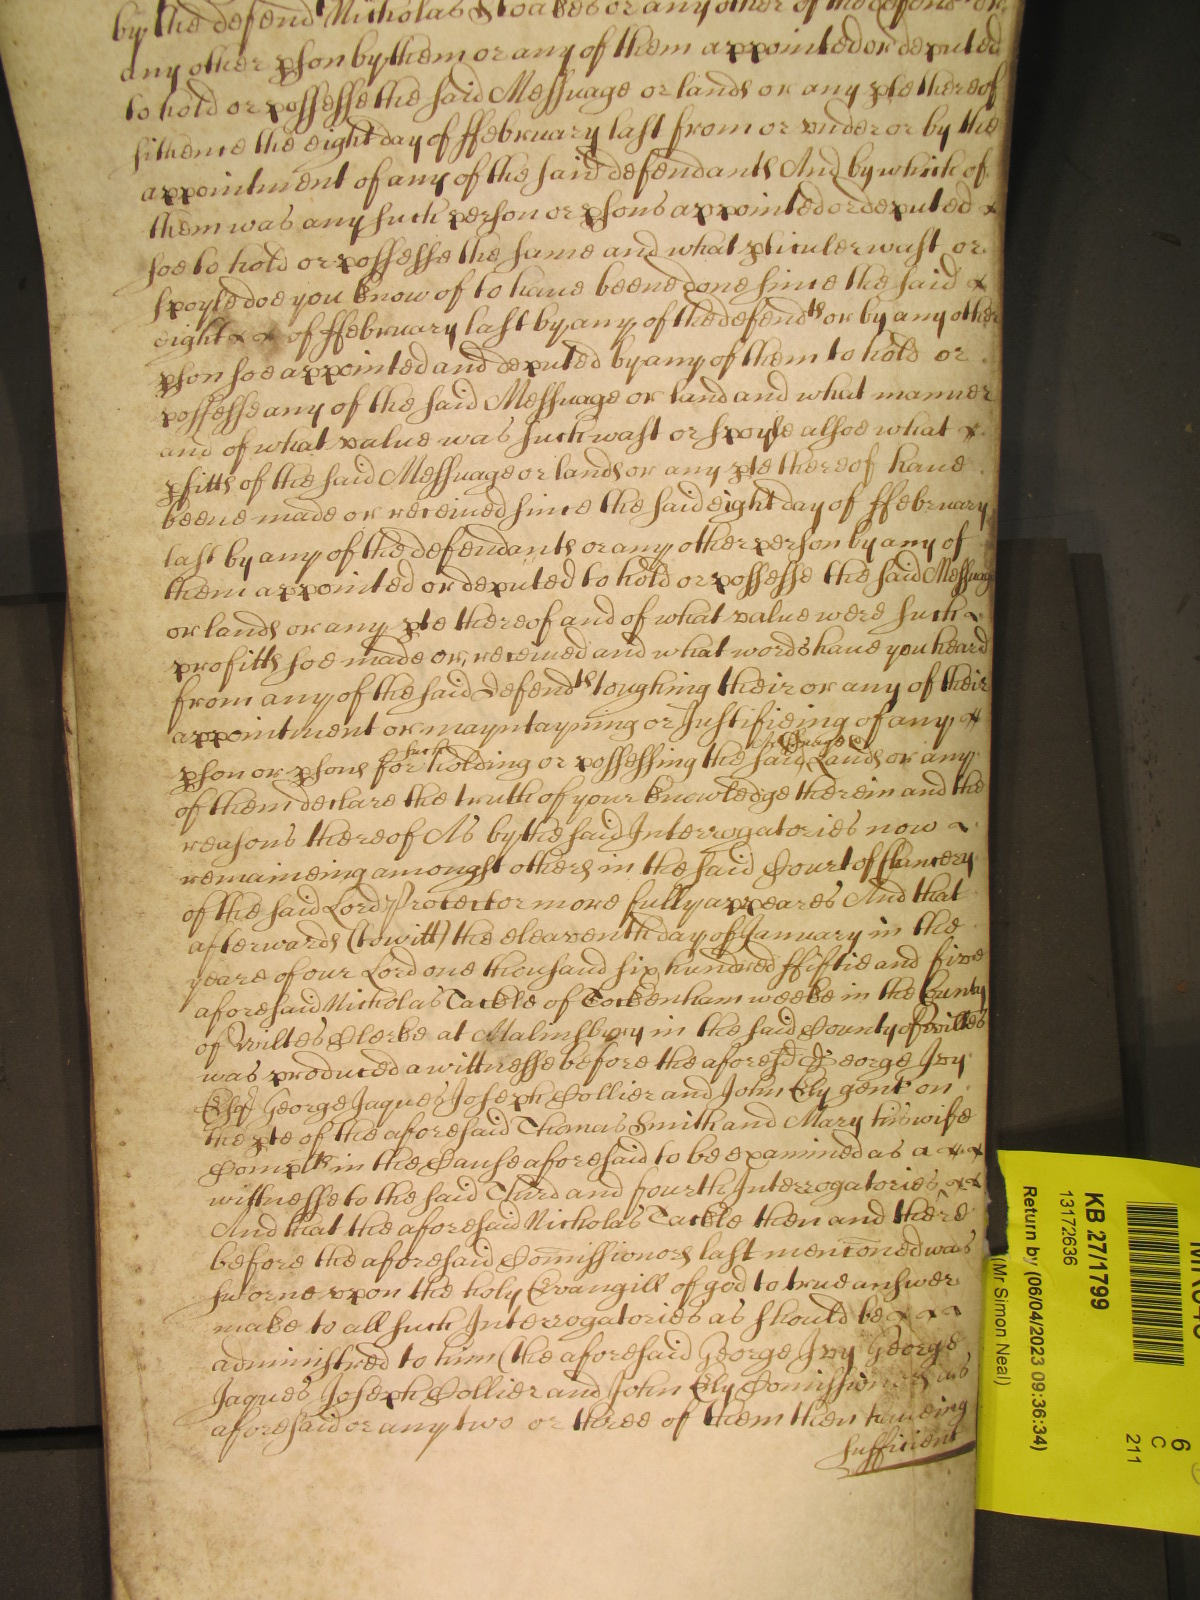 by the defend Nicholas Stoakes or any other of the defend or
any other pson by them or any of them appointed or deputed
to hold or possesse the said Messuage or lands or any pte thereof
sithence the eight day of ffebruary last from or vnder or by the
appointment of any of the said defendants And by which of
them was any such person or psons appointed or deputed x
soe to hold or possesse the same and what pticuler wast or
spoyle doe you know of to haue beene done since the said x
eight x x of ffebruary last by any of the defendts or by any other
pson soe appointed and deputed by any of them to hold or
possesse any of the said Messuage or land and what manner
and of what value was such wast or spoyle alsoe what x
pfitts of the said Messuage or lands or any pte thereof haue
beene made or receiued since the said eight day of ffebruary
last by any of the defendants or any other person by any of
them appointed or deputed to hold or possesse the said Messuage
or lands or any pte thereof and of what value were such x
profitts soe made or receiued and what words haue you heard
from any of the said defendts touching their or any of their
appointment or mayntayning or Justifieing of any x
pson or psons for such holding or possessing the said Messuage Lands or any
of them declare the truth of your knowledge therein and the
reasons thereof As by the said Interrogatories now x
remaineing amongst others in the said Court of Chancery
of the said Lord Protector more fully appeares And that
afterwards (to witt) the eleaventh day of January in the
yeare of our Lord one thousand six hundred ffiftie and five
aforesaid Nicholas Tackle of Tockenham weeke in the County
of Wiltes Clerke at Malmsbury in the said County of Wiltes
was produced a wittnesse before the aforesd George Ivy
Esqr George Jaques Joseph Collier and John Ely gent on
the pte of the aforesaid Thomas Smith and Mary his wife
Complts in the Cause aforesaid to be examined as a x x
wittnesse to the said Third and fourth Interrogatories x x
And that the aforesaid Nicholas Tackle then and there
before the aforesaid Comissioners last mencioned was
sworne vpon the holy Evangill of god to true answer
make to all such Interrogatories as should be x x x
administred to him (the aforesaid George Ivy George
Jaques Joseph Collier and John Ely Comissioners as
aforesaid or any two or three of them then haueing
sufficient
KB 27/1799
13172636
Return by (06/04/2023 09:36:34)
(Mr Simon Neal)
6
C
211